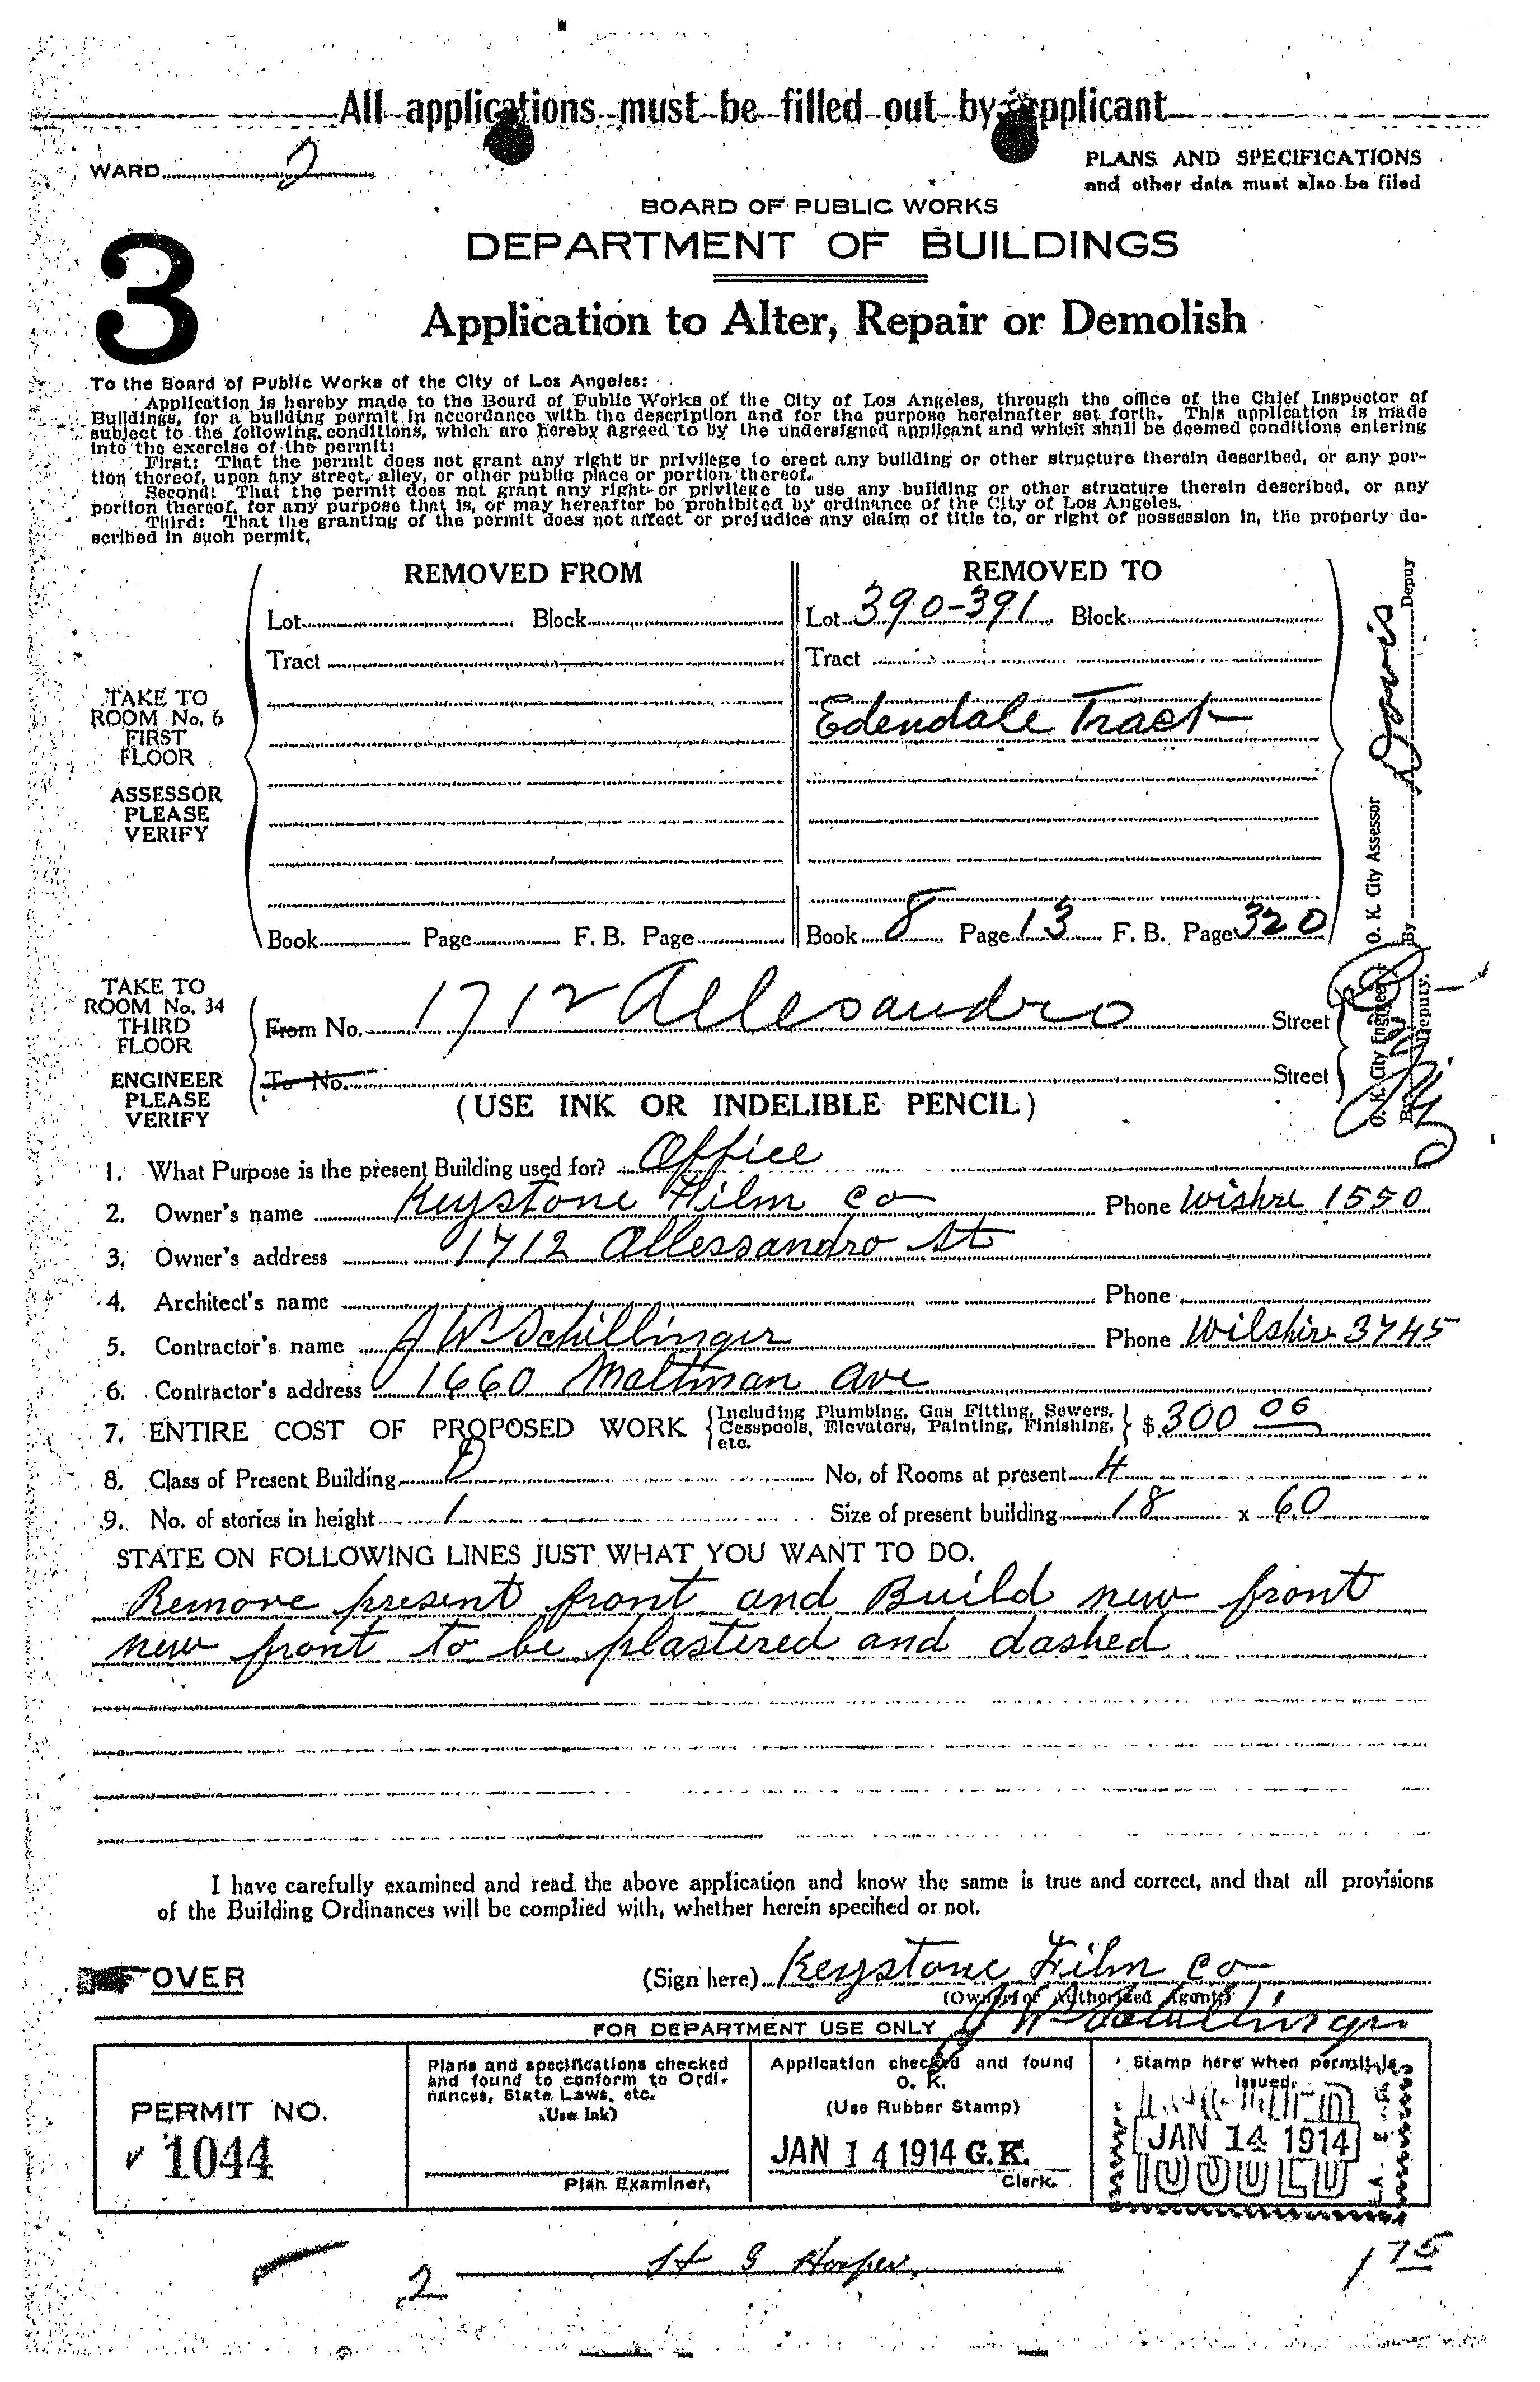 All applications must be filled out by applicant
WARD 2
PLANS AND SPECIFICATIONS
and other data must also be filed
BOARD OF PUBLIC WORKS
DEPARTMENT OF BUILDINGS
3
Application to Alter, Repair or Demolish
To the Board of Public Works of the City of Los Angeles:
Application is hereby made to the Board of Public Works of the City of Los Angeles, through the office of the Chief Inspector of
Buildings, for a building permit in accordance with the description and for the purpose hereinafter set forth. This application is made
subject to the following conditions, which are hereby agreed to by the undersigned applicant and which shall be deemed conditions entering
into the exercise of the permit:
First: That the permit does not grant any right or privilege to erect any building or other structure therein described, or any por-
tion thereof, upon any street, alley, or other public place or portion thereof.
Second: That the permit does not grant any right or privilege to use any building or other structure therein described, or any
portion thereof, for any purpose that is, or may hereafter be prohibited by ordinance of the City of Los Angeles.
Third: That the granting of the permit does not affect or prejudice any claim of title to, or right of possession in, the property de-
scribed in such permit.
TAKE TO
ROOM No. 6
FIRST
FLOOR
ASSESSOR
PLEASE
VERIFY
REMOVED FROM
Lot Block
Tract
Book Page F. B. Page
REMOVED TO
Lot 390-391 Block
Tract
Edendale Tract
Book 8 Page 13 F. B. Page 320
O. K. City Assessor
By Davis Depuy
TAKE TO
ROOM No. 34
THIRD
FLOOR
ENGINEER
PLEASE
VERIFY
From No. 1712 Allesandro Street
To No. Street
O. K. City Engineer
By Deputy.
(USE INK OR INDELIBLE PENCIL)
1. What Purpose is the present Building used for? Office
2. Owner's name Keystone Film Co Phone Wishre 1550
3. Owner's address 1712 Allessandro St
4. Architect's name Phone
5. Contractor's name J W Schillinger Phone Wilshire 3745
6. Contractor's address 1660 Maltman Ave
7. ENTIRE COST OF PROPOSED WORK {Including Plumbing, Gas Fitting, Sewers, Cesspools, Elevators, Painting, Finishing, etc.} $ 300 00
8. Class of Present Building D No. of Rooms at present 4
9. No. of stories in height 1 Size of present building 18 x 60
STATE ON FOLLOWING LINES JUST WHAT YOU WANT TO DO.
Remove present front and Build new front
new front to be plastered and dashed
I have carefully examined and read the above application and know the same is true and correct, and that all provisions
of the Building Ordinances will be complied with, whether herein specified or not.
OVER
(Sign here) Keystone Film Co
(Owner or Authorized Agent)
J W Schillinger
FOR DEPARTMENT USE ONLY
PERMIT NO.
1044
Plans and specifications checked
and found to conform to Ordi-
nances, State Laws, etc.
(Use Ink)
Plan Examiner.
Application checked and found
O. K.
(Use Rubber Stamp)
JAN 14 1914 G.K.
Clerk.
Stamp here when permit is
issued.
JAN 14 1914
2
175